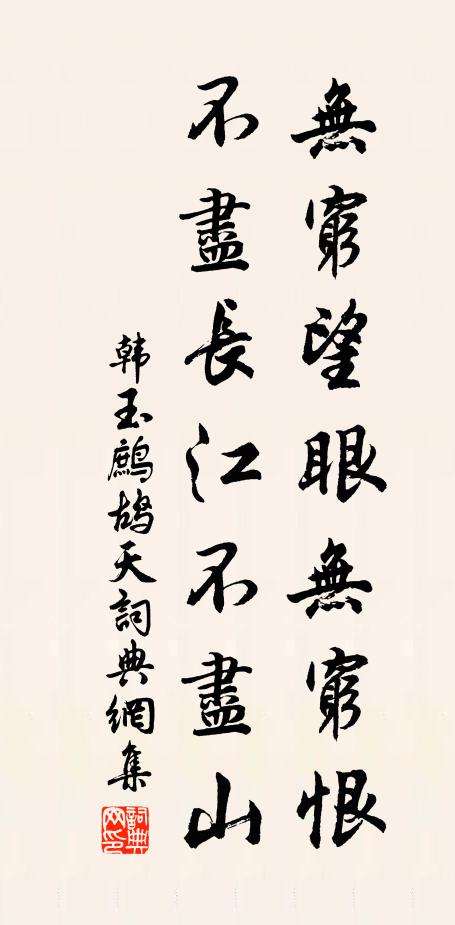 無窮望眼無窮恨
不盡長江不盡山
韩玉鷓鴣天詞典網集
詞典网印